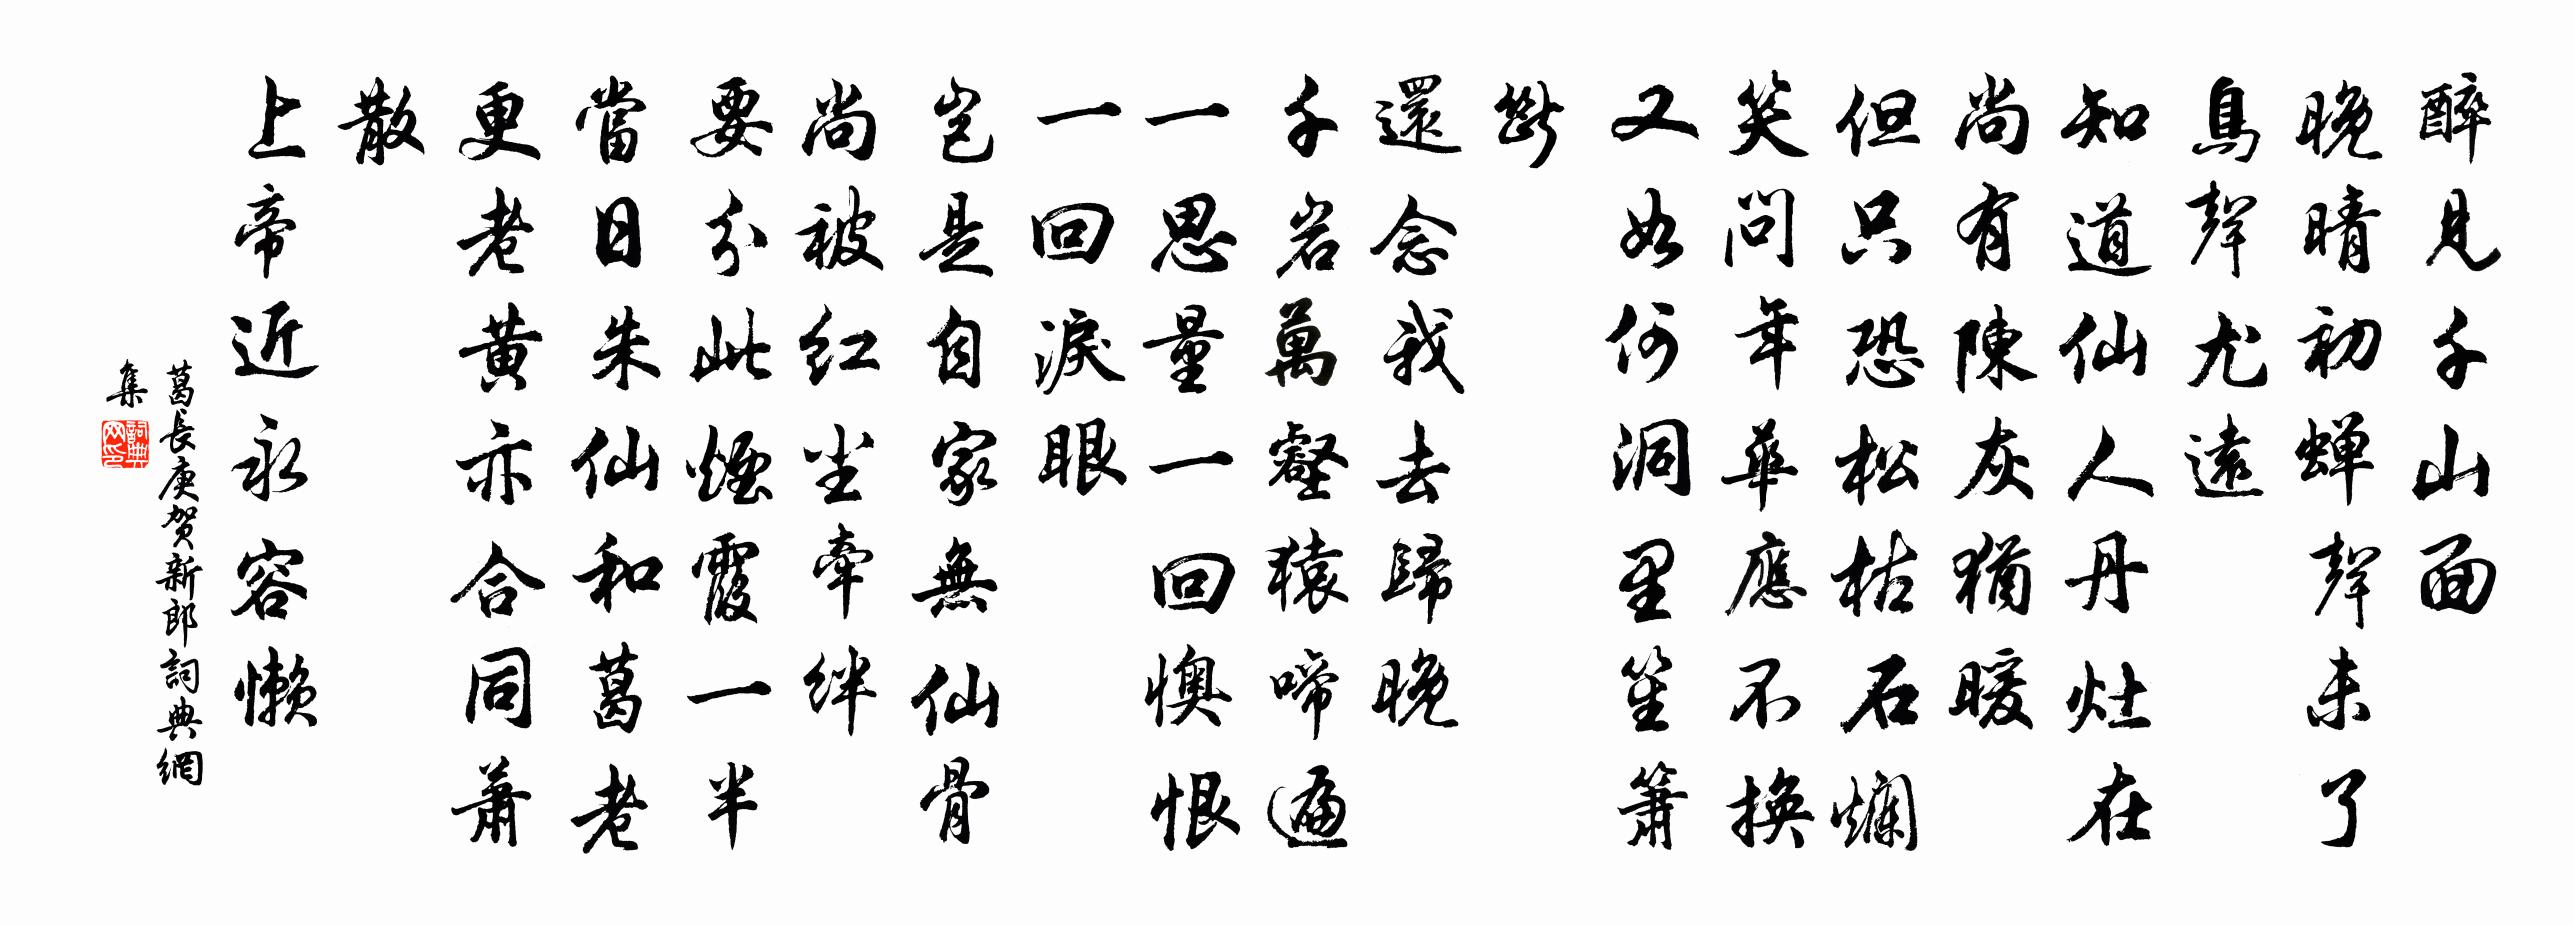 醉見千山面
晚晴初蝉聲未了
鳥聲尤遠
知道仙人丹灶在
尚有陳灰猶暖
但只恐松枯石爛
笑問年華應不換
又如何洞里笙簫
斷
還念我去歸晚
千岩萬壑猿啼遍
一思量一回懊恨
一回淚眼
豈是自家無仙骨
尚被红尘牽绊
要分此煙霞一半
當日朱仙和葛老
更老黄亦合同蕭
散
上帝近永容懒
葛長庚贺新郎詞典網
集
詞典网印